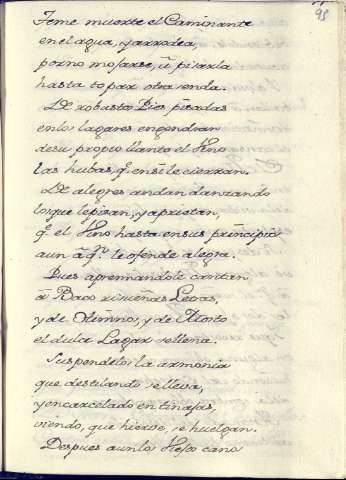 95
Teme muerte el Caminante
en el agua, y arrodea,
por no mojarse, ù pisarla
hasta topar otra senda.
De robustos Pies pisadas
en los lagares engendran
de su propio llanto el Vino
las hubas, q.e en sì le cierran.
De alegres andan danzando
los que le pisan, y aprietan,
q.e el Vino hasta en sus principios
aun à q.n le ofende alegra.
Pues aprensandole cantan
à Baco risueñas Letras,
y de Himno, y de Mosto
el dulce Lagar se llena.
Suspendelos la armonìa
que destilando se lleva,
y encarcelado en tinajas,
viendo, que hierve, se huelgan.
Despues aun lo cano